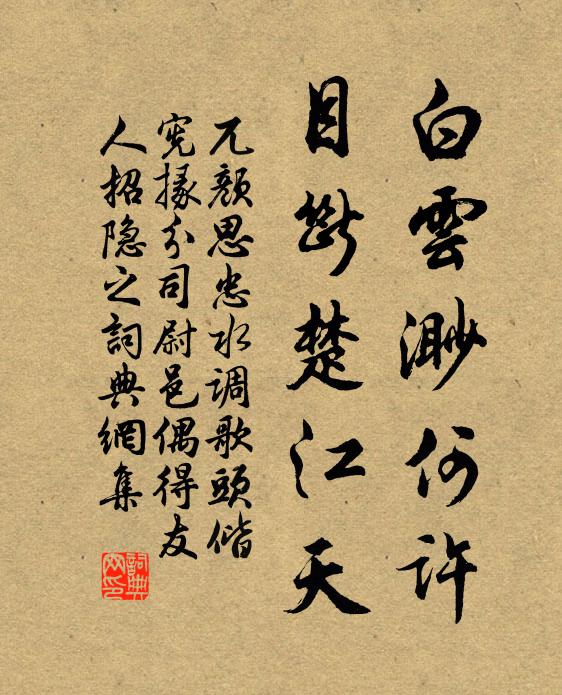 白雲渺何許
目斷楚江天
兀顏思忠水调歌頭偕
宪掾分司尉邑偶得友
人招隐之詞典網集
詞典网印